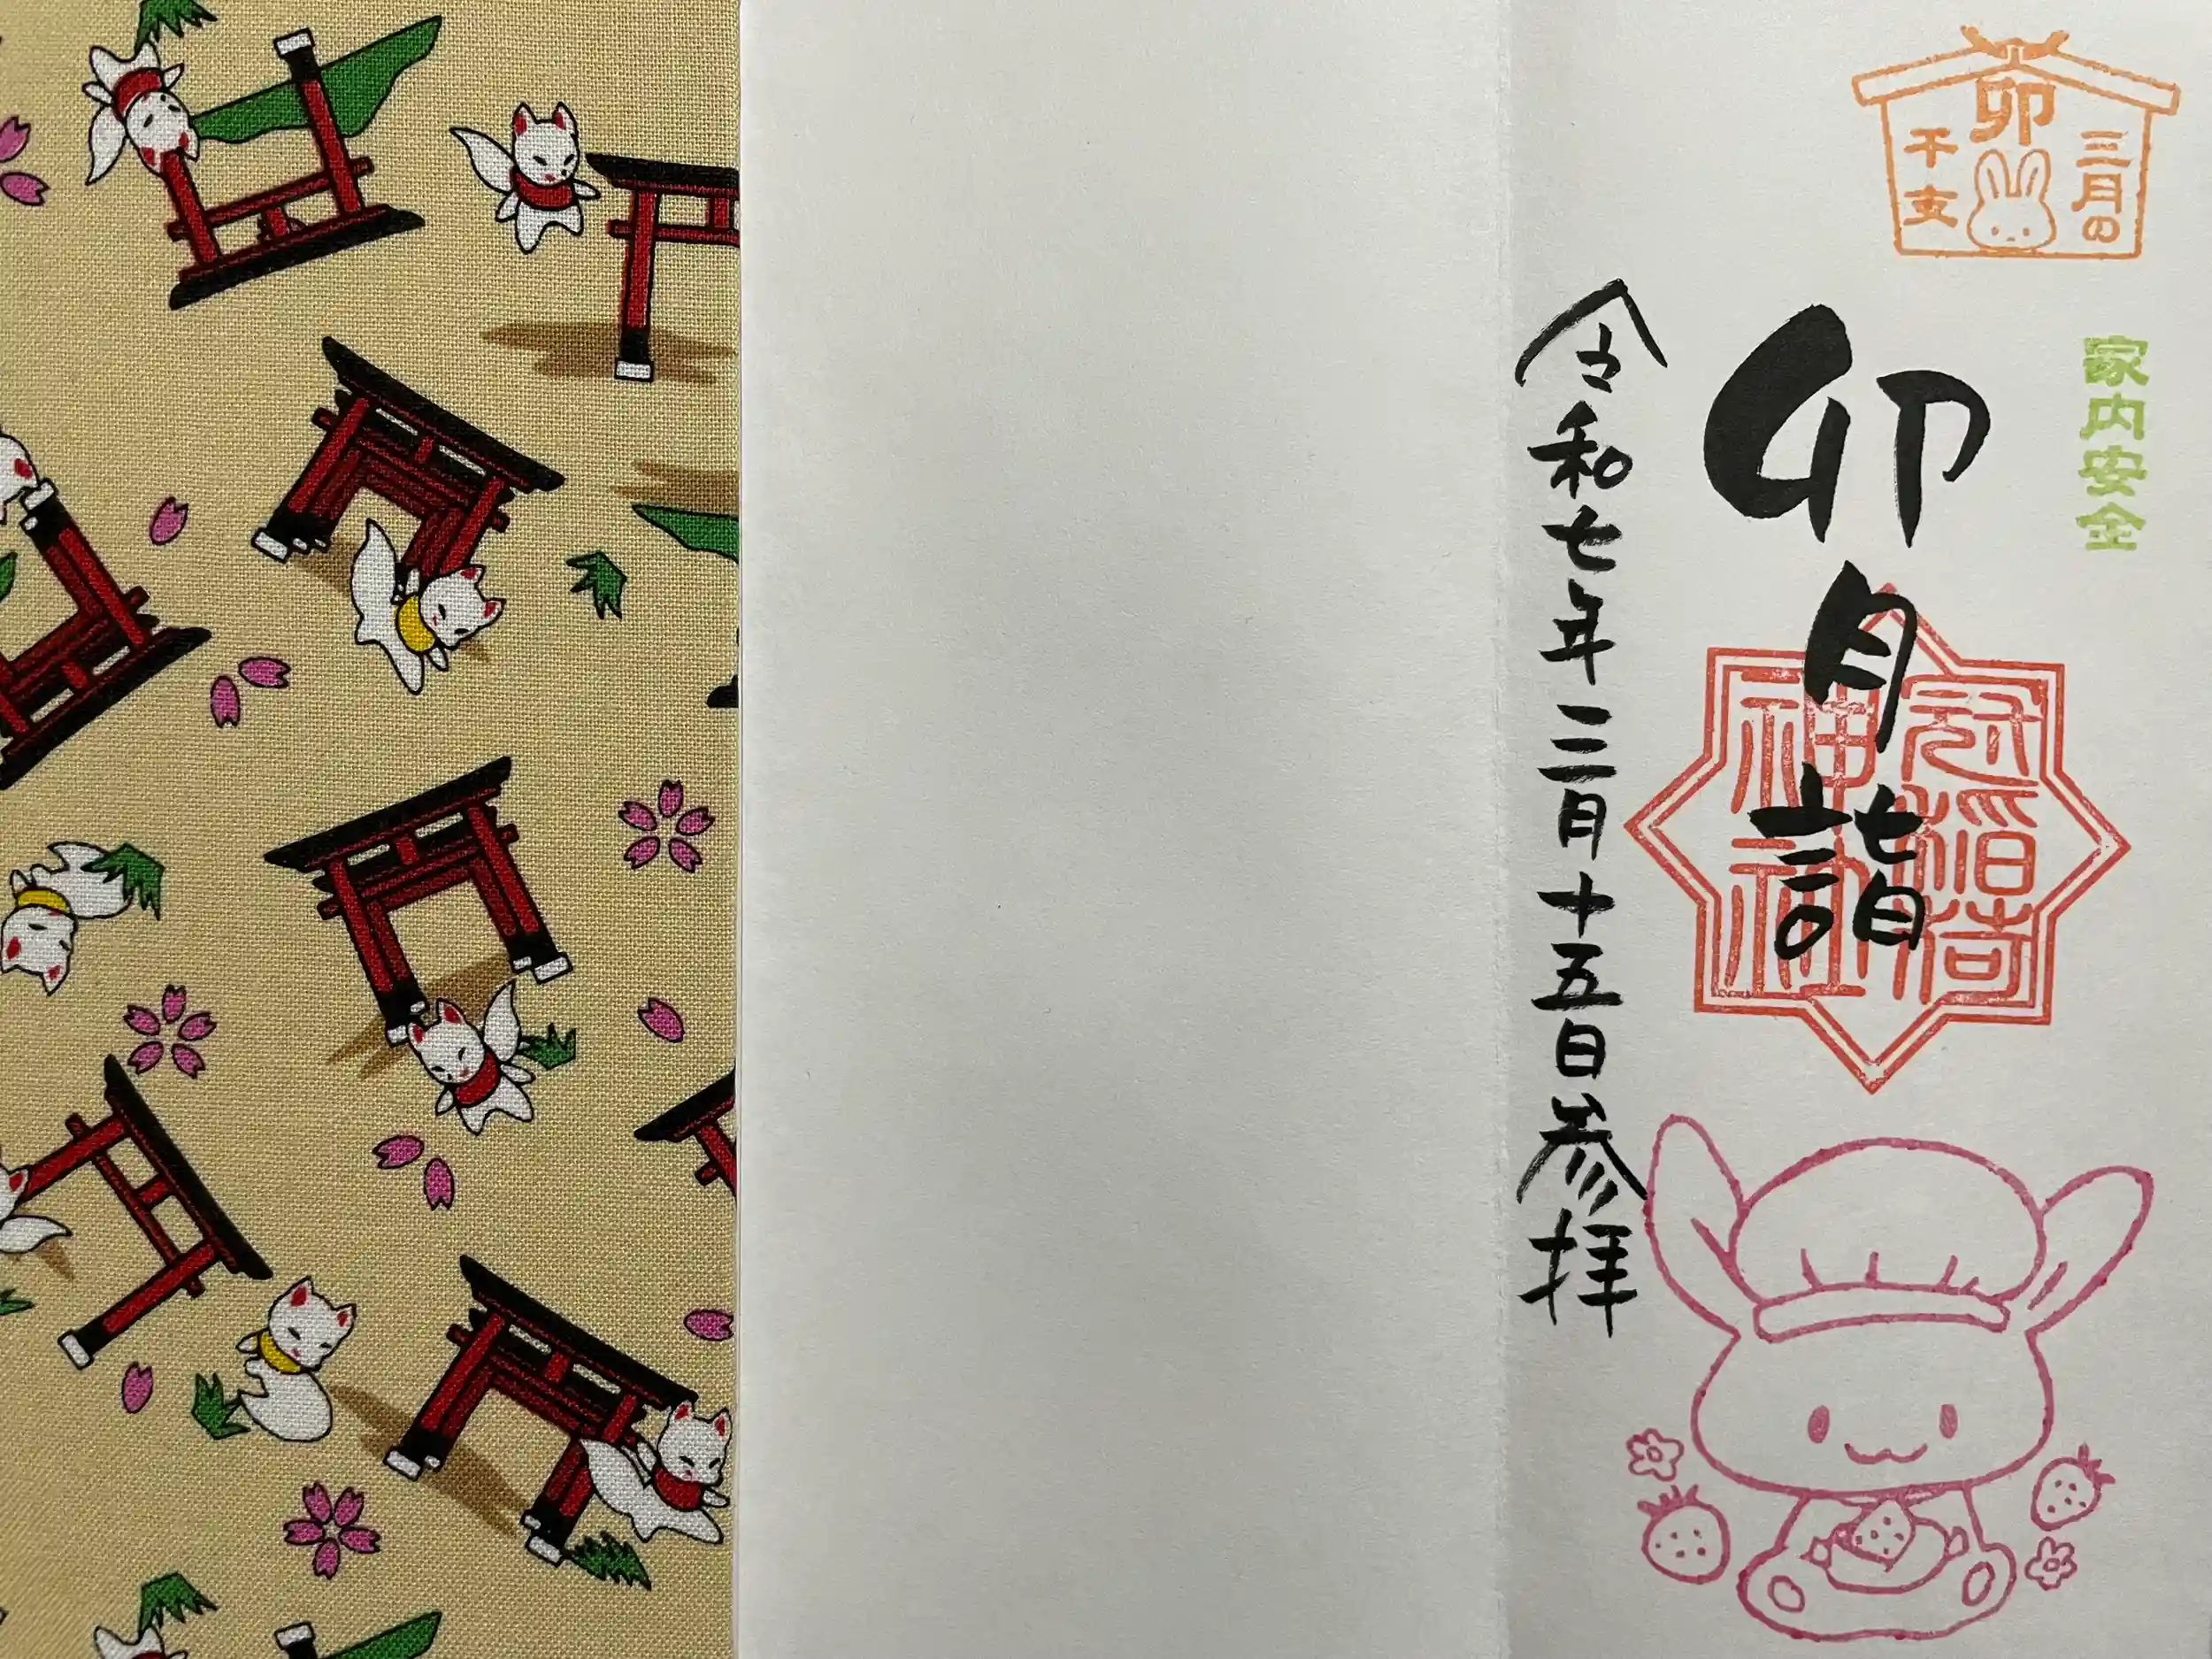 卯
三月の
干支
家内安全
卯月詣
冠稲荷
神社
令和七年三月十五日参拝